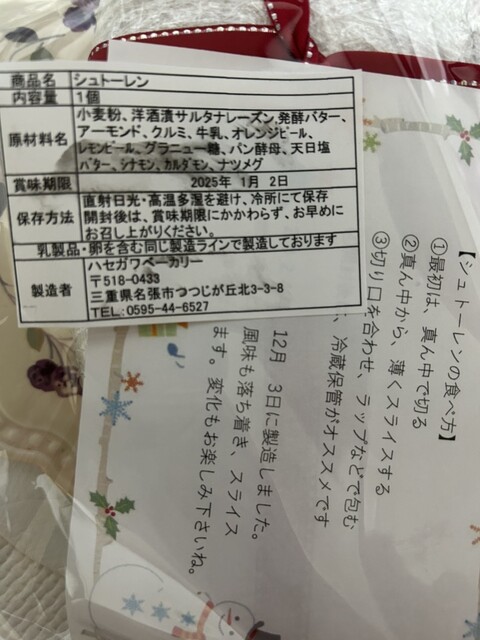 商品名 シュトーレン
内容量 1個
原材料名 小麦粉、洋酒漬サルタナレーズン,発酵バター、
アーモンド、クルミ、牛乳、オレンジピール、
レモンピール、グラニュー糖、パン酵母、天日塩
バター、シナモン、カルダモン、ナツメグ
賞味期限 2025年 1月 2日
保存方法 直射日光・高温多湿を避け、冷所にて保存
開封後は、賞味期限にかかわらず、お早めに
お召し上がりください。
乳製品・卵を含む同じ製造ラインで製造しております
製造者 ハセガワベーカリー
〒518-0433
三重県名張市つつじが丘北3-3-8
TEL:0595-44-6527
【シュトーレンの食べ方】
①最初は、真ん中で切る
②真ん中から、薄くスライスする
③切り口を合わせ、ラップなどで包む
、冷蔵保管がオススメです
12月 3日に製造しました。
風味も落ち着き、スライス
ます。変化もお楽しみ下さいね。